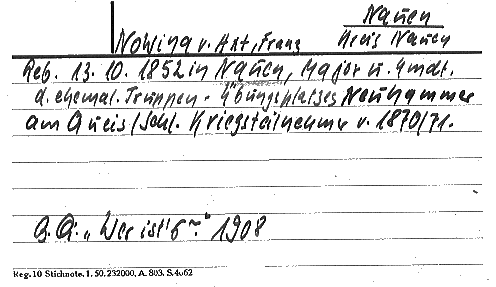 Nauen
Kreis Nauen
v. Art, Franz
Geb. 13. 10. 1852 in Nauen, Major u. Kmdt.
d. ehemal. Truppen-Übungsplatzes Neuhammer
am Queis/Schl. Kriegsteilnehmer v. 1870/71.
"Wer ist's" 1908
Reg. 10 Stichnote. 1. 50. 232000, A. 803. S. 4062